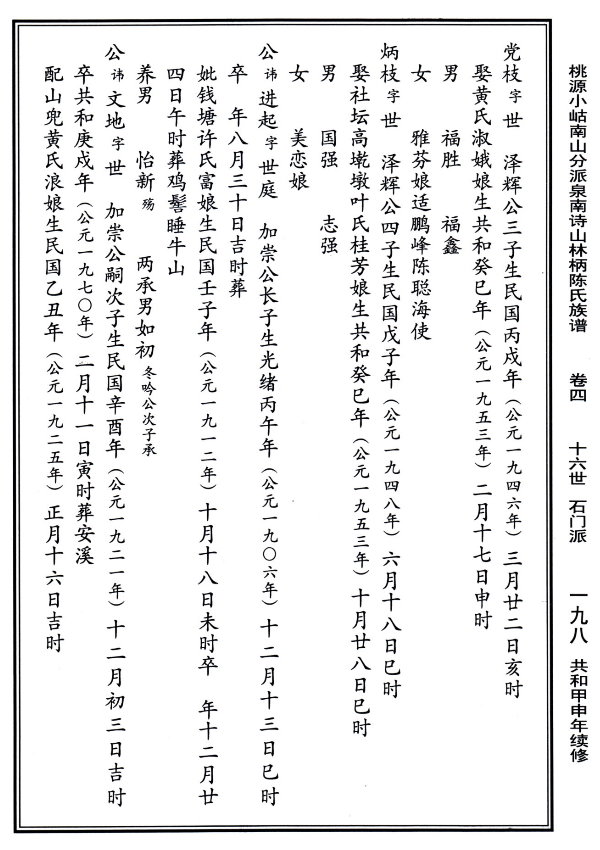 桃源小岵南山分派泉南诗山林柄陈氏族谱 卷四 十六世 石门派 一九八 共和甲申年续修
党枝字世 泽辉公三子生民国丙戍年（公元一九四六年）三月廿二日亥时
娶黄氏淑娥娘生共和癸巳年（公元一九五三年）二月十七日申时
男 福胜 福鑫
女 雅芬娘适鹏峰陈聪海使
炳枝字世 泽辉公四子生民国戊子年（公元一九四八年）六月十八日巳时
娶社坛高墘墩叶氏桂芳娘生共和癸巳年（公元一九五三年）十月廿八日巳时
男 国强 志强
女 美恋娘
公讳进起字世庭 加崇公长子生光绪丙午年（公元一九〇六年）十二月十三日巳时
卒 年八月三十日吉时葬
妣钱塘许氏富娘生民国壬子年（公元一九一二年）十月十八日未时卒 年十二月廿
四日午时葬鸡髻睡牛山
养男 怡新殇 两承男如初冬吟公次子承
公讳文地字世 加崇公嗣次子生民国辛酉年（公元一九二一年）十二月初三日吉时
卒共和庚戍年（公元一九七〇年）二月十一日寅时葬安溪
配山兜黄氏浪娘生民国乙丑年（公元一九二五年）正月十六日吉时